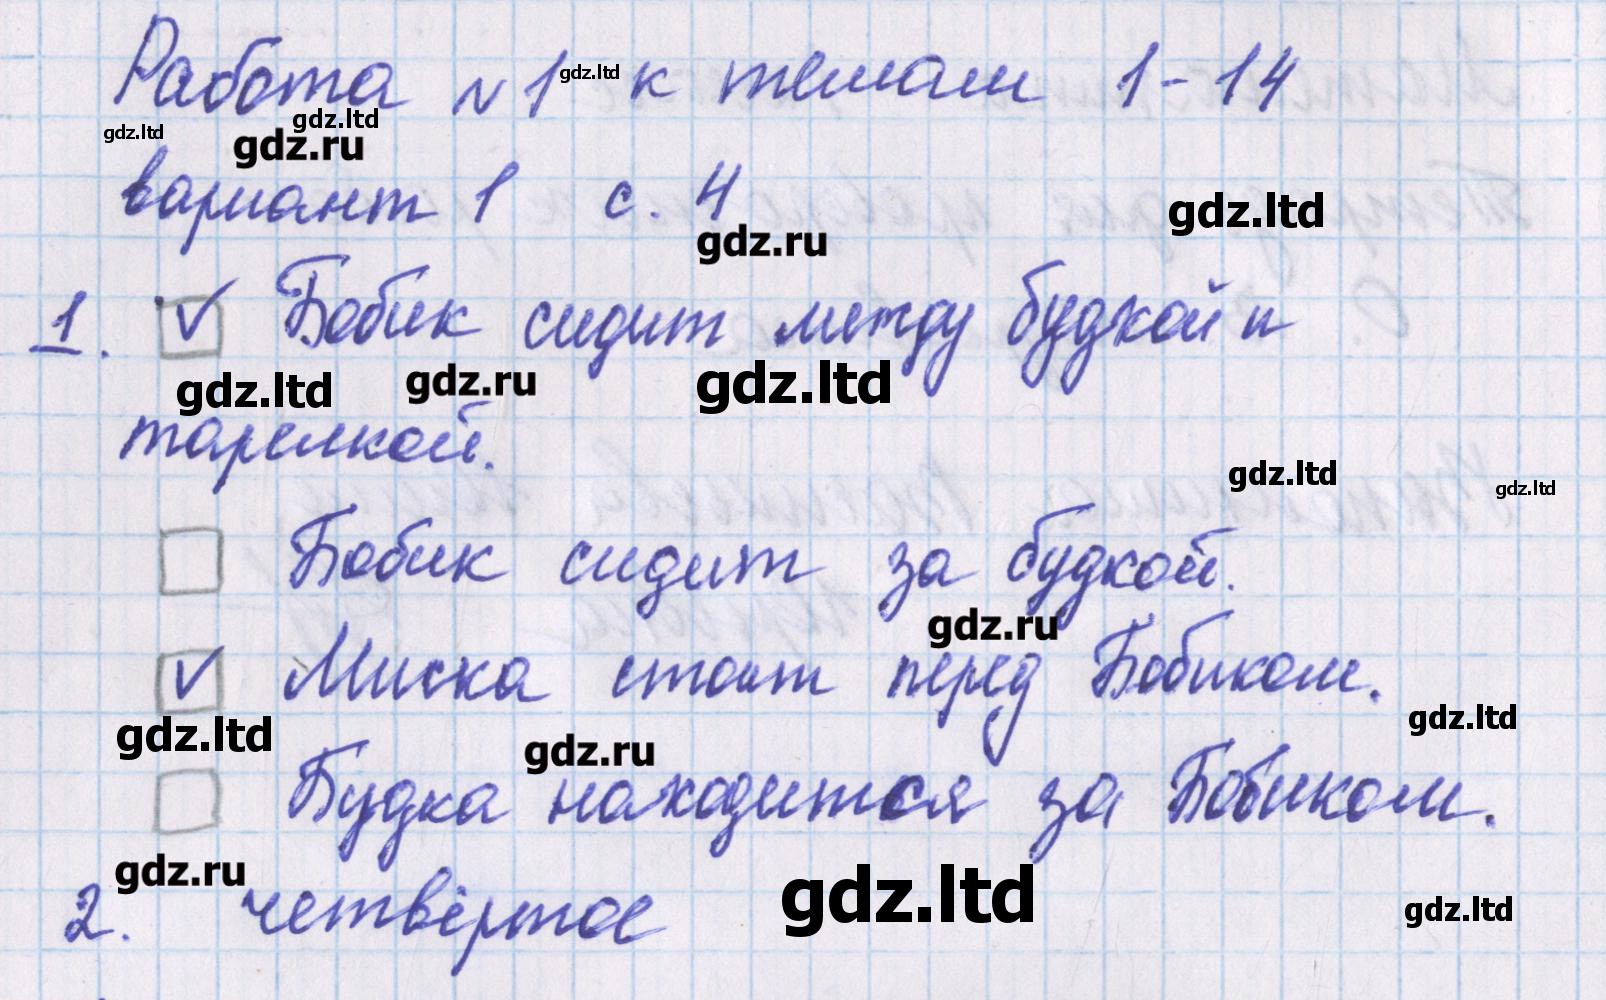 Работа №1 gdz.ltd к темам 1-14
gdz.ltd gdz.ltd
gdz.ru
вариант 1 с. 4 gdz.ltd
gdz.ru
1. ✓ Бобик сидит между будкой и
gdz.ltd gdz.ru gdz.ltd
тарелкой.
gdz.ltd gdz.ltd
Бобик сидит за будкой.
gdz.ru
✓ Миска стоит перед Бобиком.
gdz.ltd gdz.ru gdz.ltd
Будка находится за Бобиком.
gdz.ru gdz.ltd gdz.ltd
2. четвёртое